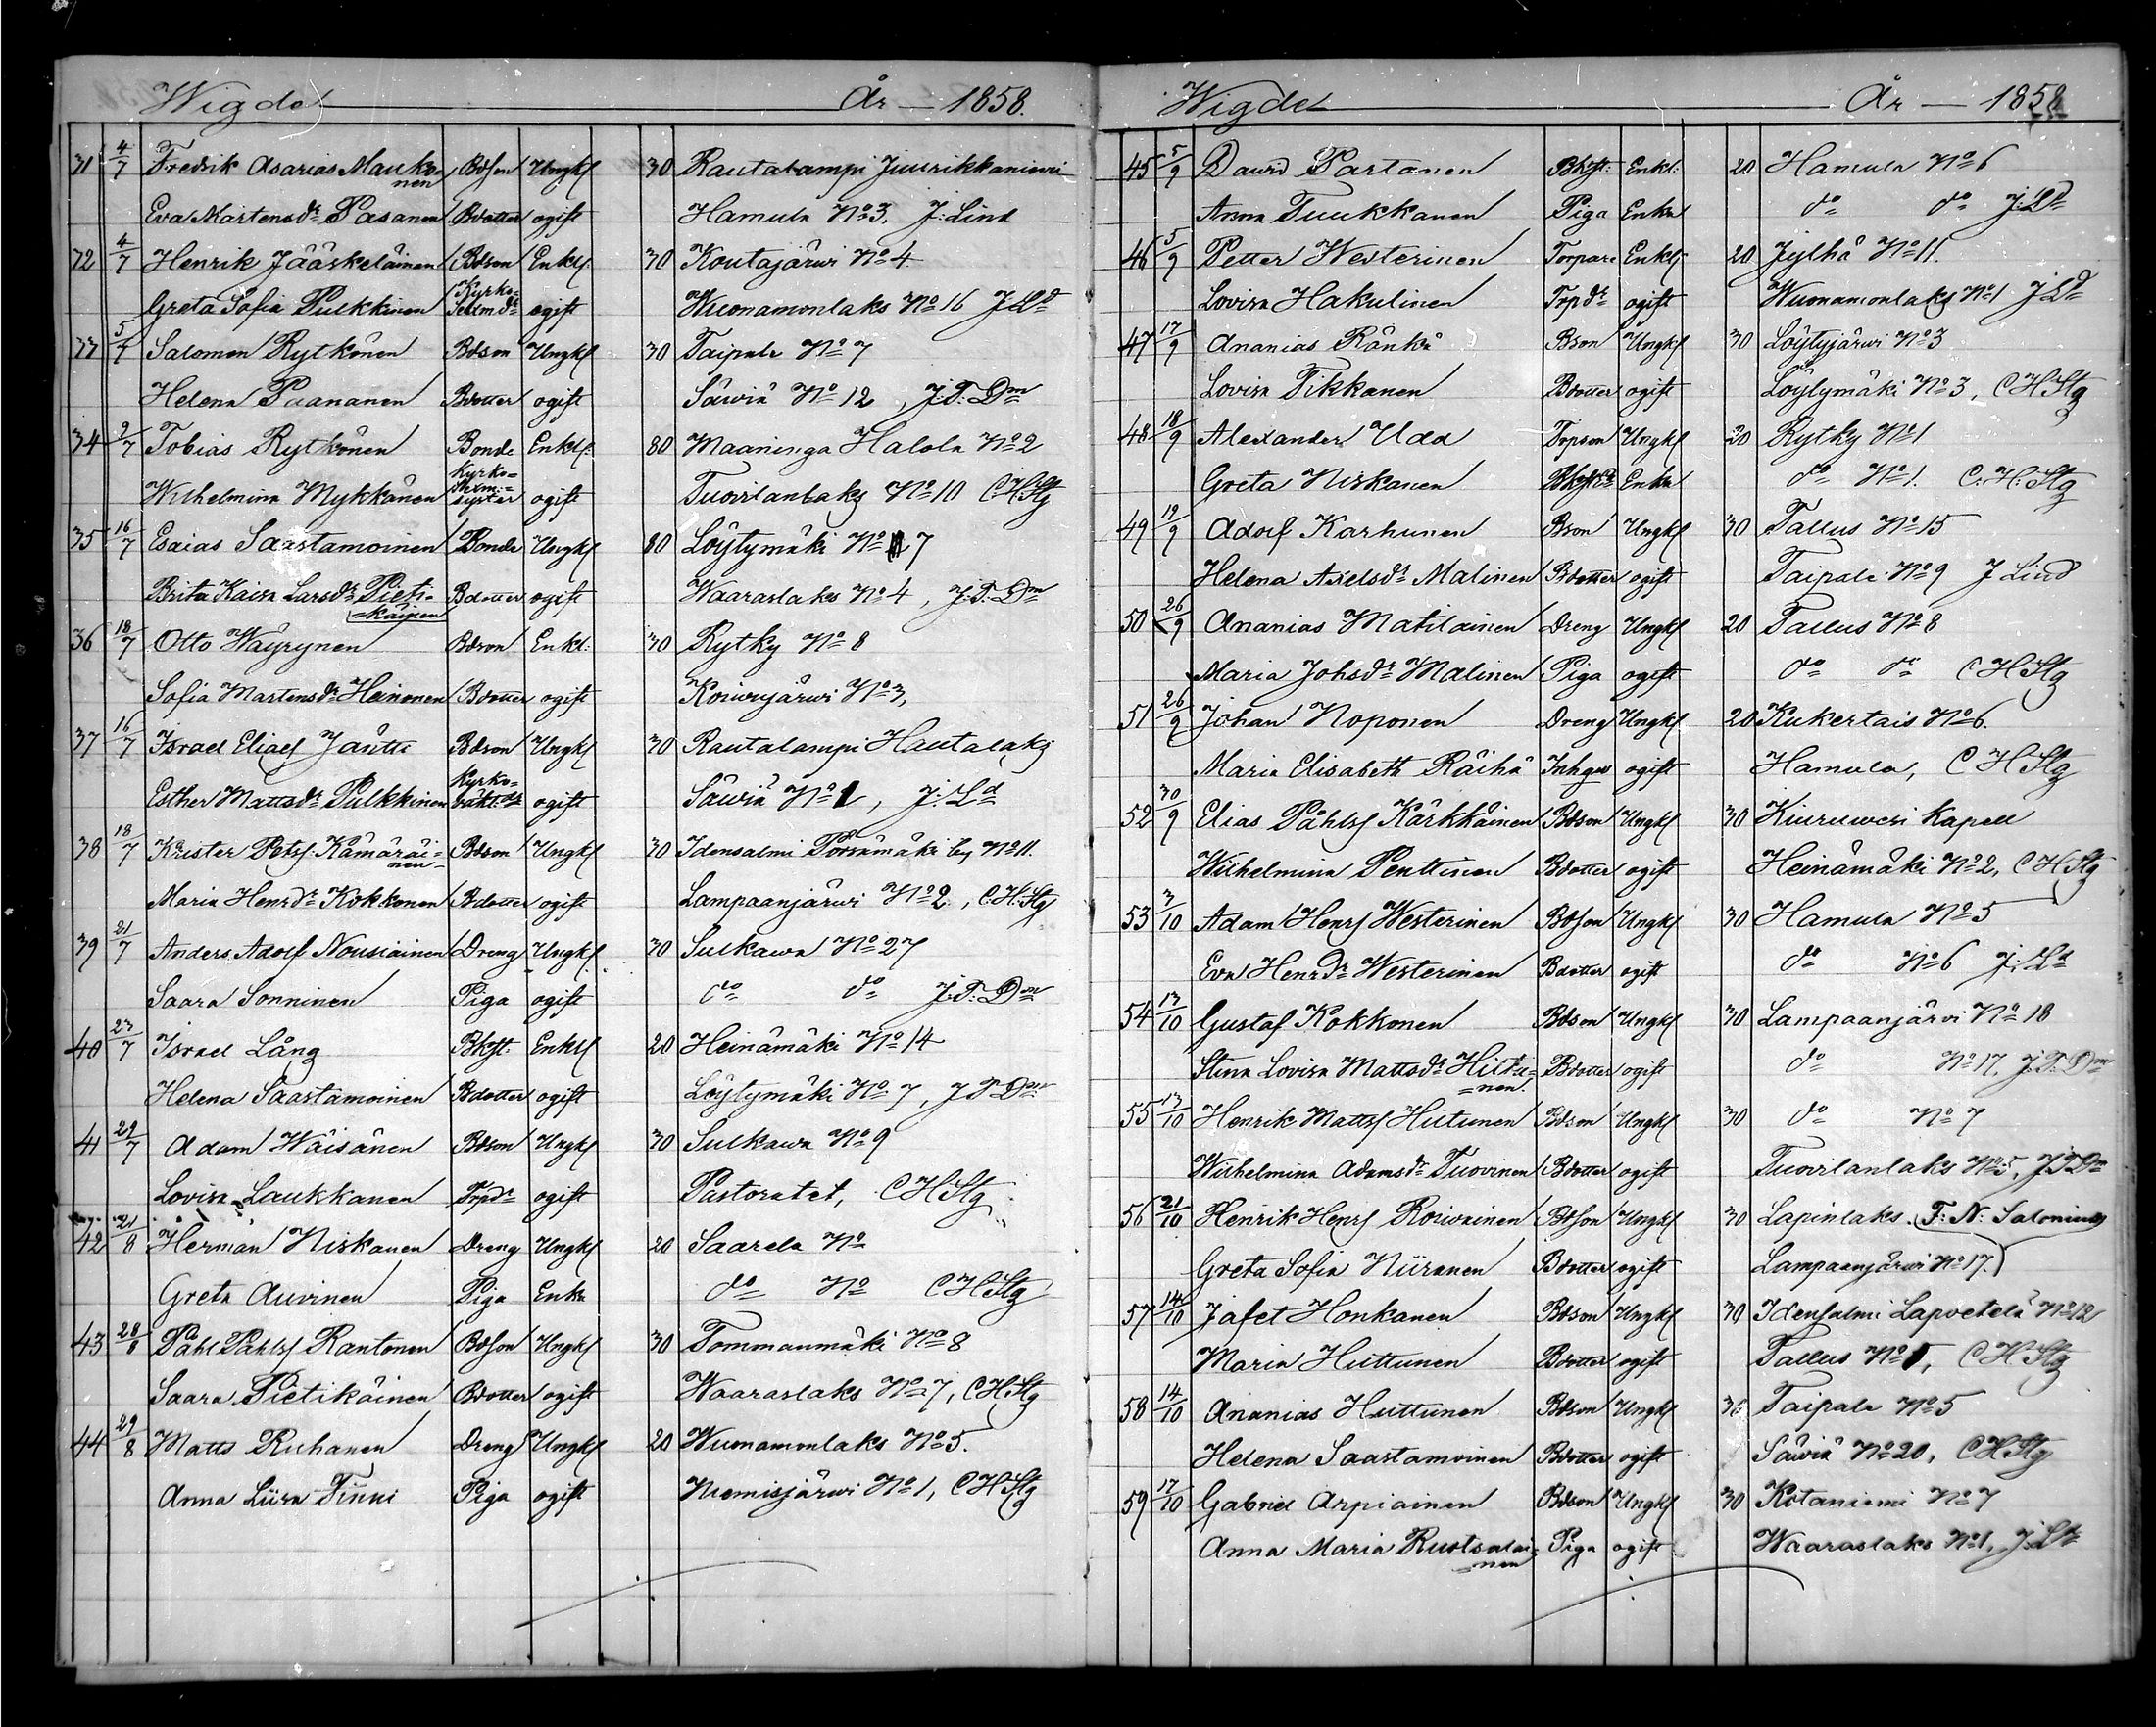 Wigde År 1858.
31 4/7 Fredrik Asarias Mauko-
nen Bdson Ungkl 30 Rautalampi Juurikkaniemi
Eva Mårtensdr Pasanen Bdotter ogift Hamula No 3. J: Lind
32 4/7 Henrik Jääskeläinen Bdson Enkl 30 Koutajärwi No 4.
Greta Sofia Pulkkinen Kyrko- ogift Wuonamonlaks No 16 J Ld
33 5/7 Salomon Rytkönen Bdson Ungkl 30 Taipale No 7
Helena Paananen Bdotter ogift Säwiä No 12, J.T. Dm
34 9/7 Tobias Rytkönen Bonde Enkl: 80 Maaninga Halola No 2
Wilhelmina Mykkänen Kyrko-
syster ogift Tuovilanlaks No 10 C.H. Stg
35 16/7 Esaias Saastamoinen Bonde Ungkl 80 Löytymäki No 7
Brita Kaisa Larsdr Pieti-
=käinen Bdotter ogift Waaraslaks No 4, J.T. Dm
36 18/7 Otto Wäyrynen Bdson Enkl: 30 Rytky No 8
Sofia Mårtensdr Heinonen Bdotter ogift Koiwujärwi No 3,
37 16/7 Israel Eliasf Jäntti Bdson Ungkl 30 Rautalampi Hautalaks
Esther Mattsdr Pulkkinen Kyrko- ogift Säwiä No 1, J: Ld
38 18/7 Krister Petsf. Kämäräi-
nen Bdson Ungkl 30 Idensalmi Pörsänmäki by No 11.
Maria Henrdr Kokkonen Bdotter ogift Lampaanjärwi No 2, C.H. Stg
39 21/7 Anders Adolf Nousiainen Dreng Ungkl 30 Sulkawa No 27
Saara Sonninen Piga ogift do do J.T. Dm
40 23/7 Israel Lång Bkft: Enkl 20 Heinämäki No 14
Helena Saastamoinen Bdotter ogift Löytymäki No 7, J T Dm
41 29/7 Adam Wäisänen Bdson Ungkl 30 Sulkawa No 9
Lovisa Laukkanen Trpdr ogift Pastoratet, C H Stg
42 21/8 Herman Niskanen Dreng Ungkl 20 Saarela No
Greta Auvinen Piga Enka do No C H Stg
43 28/8 Påhl Påhlsf Rantonen Bdson Ungkl 30 Tommanmäki No 8
Saara Pietikäinen Bdotter ogift Waaraslaks No 7, C.H. Stg
44 29/8 Matts Ruhanen Dreng Ungkl 20 Wuonamonlaks No 5.
Anna Liisa Finni Piga ogift Niemisjärwi No 1, C H Stg
Wigde År 1858
45 5/9 David Partanen Bkft: Enkl: 20 Hamula No 6
Anna Tuukkanen Piga Enka do do J: Ld
46 5/9 Petter Westerinen Torpare Enkl 20 Jylhä No 11.
Lovisa Hakulinen Trpdr ogift Wuonamonlaks No 1 J Ld
47 17/9 Ananias Ränkä Bson Ungkl 30 Löytyjärwi No 3
Lovisa Tikkanen Bdotter ogift Löytymäki No 3, C H Stg
48 18/9 Alexander Udd Trpson Ungkl 20 Rytky No 1
Greta Niskanen Enka do No 1. C: H: Stg
49 19/9 Adolf Karhunen Bson Ungkl 30 Tallus No 15
Helena Axelsdr Malinen Bdotter ogift Taipale No 9 J Lind
50 26/9 Ananias Matilainen Dreng Ungkl 20 Tallus No 8
Maria Johsdr Malinen Piga ogift do do C H Stg
51 26/9 Johan Noponen Dreng Ungkl 20 Kukertais No 6.
Maria Elisabeth Räihä Inhgs ogift Hamula, C H Stg
52 30/9 Elias Påhlsf Kärkkäinen Bdson Ungkl 30 Kiuruwesi Kapell
Wilhelmina Penttinen Bdotter ogift Heinämäki No 2, C H Stg
53 3/10 Adam Henrsf Westerinen Bdson Ungkl 30 Hamula No 5
Eva Henrdr Westerinen Bdotter ogift do No 6 J: Ld
54 13/10 Gustaf Kokkonen Bdson Ungkl 30 Lampaanjärvi No 18
Stina Lovisa Mattsdr Huttu-
=nen. Bdotter ogift do No 17. J.T. Dm
55 13/10 Henrik Mattsf Hutunen Bdson Ungkl 30 do No 7
Wilhelmina Adamsdr Tuovinen Bdotter ogift Tuovilanlaks No 5, J T Dm
56 21/10 Henrik Henrsf Roivainen Bdson Ungkl 30 Lapinlaks F: N: Salonius
Greta Sofia Niiranen Bdotter ogift Lampaanjärwi No 17.
57 14/10 Jafet Honkanen Bdson Ungkl 30 Idensalmi Lapvetelä No 12
Maria Huttunen Bdotter ogift Tallus No 1, C H Stg
58 14/10 Ananias Huttunen Bdson Ungkl 30 Taipale No 5
Helena Saastamoinen Bdotter ogift Säwiä No 20, C H Stg
59 17/10 Gabriel Arpiainen Bdson Ungkl 30 Kotaniemi No 7
Anna Maria Ruotsalai-
nen Piga ogift Waaraslaks No 1, J: Ld